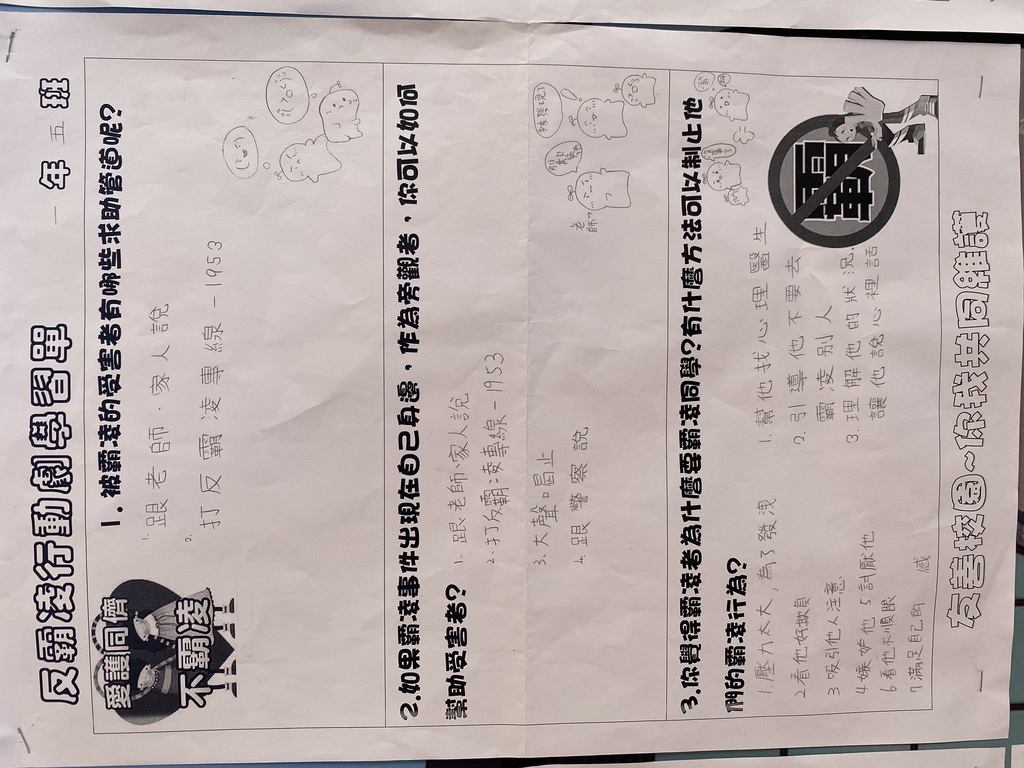 反霸凌行動劇學習單
一年五班
愛護同儕
不霸凌
1.被霸凌的受害者有哪些求助管道呢?
1.跟老師、家人說
2.打反霸凌專線-1953
2.如果霸凌事件出現在自己身邊,作為旁觀者,你可以如何
幫助受害者?
1.跟老師、家人說
2.打反霸凌專線-1953
3.大聲喝止
4.跟警察說
老師
3.你覺得霸凌者為什麼要霸凌同學?有什麼方法可以制止他
們的霸凌行為?
1.壓力太大,為了發洩
2看他好欺負
3吸引他人注意
4嫉妒他 5討厭他
6看他不順眼
7滿足自己的 感
1.幫他找心理醫生
2.引導他不要去
霸凌別人
3.理解他的狀況,
讓他說心裡話
霸凌
友善校園~你我共同維護